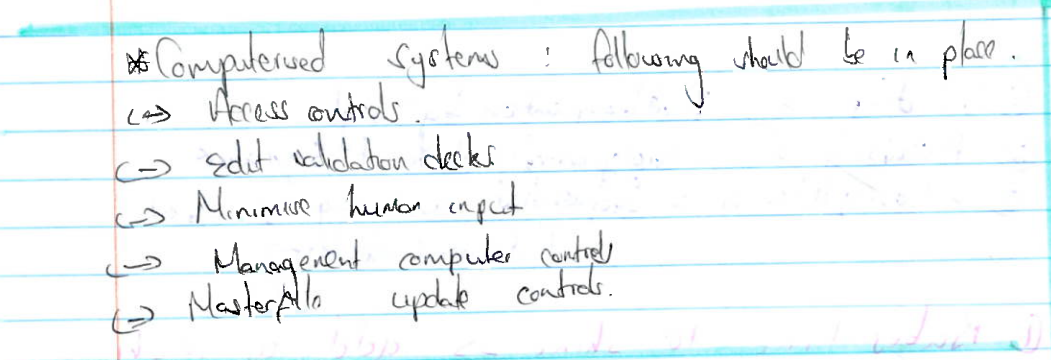 * Computerised systems : following should be in place.
↪ Access controls.
↪ Edit validation checks
↪ Minimise human input
↪ Management computer controls
↪ Masterfile update controls.